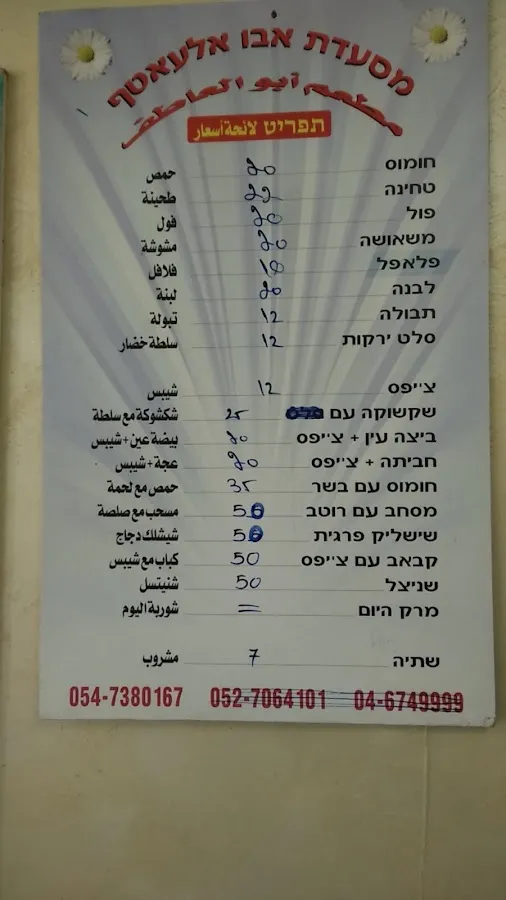 מסעדת אבו אלעאטף
مطعم أبو العاطف
תפריט لائحة أسعار
חומוס 20 حمص
טחינה طحينة
פול 20 فول
משאושה 20 مشوشة
פלאפל 10 فلافل
לבנה 20 لبنة
תבולה 12 تبولة
סלט ירקות 12 سلطة خضار
צ'יפס 12 شيبس
שקשוקה עם 25 شكشوكة مع سلطة
ביצה עין + צ'יפס 20 بيضة عين + شيبس
חביתה + צ'יפס 20 عجة + شيبس
חומוס עם בשר 35 حمص مع لحمة
מסחב עם רוטב 50 مسحب مع صلصة
שישליק פרגית 50 شيشلك دجاج
קבאב עם צ'יפס 50 كباب مع شيبس
שניצל 50 شنيتسل
מרק היום = شوربة اليوم
שתיה 7 مشروب
054-7380167 052-7064101 04-6749999